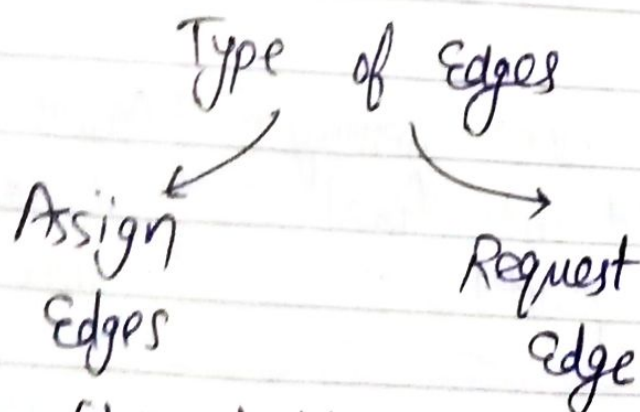 Type of Edges
Assign
Edges
Request
Edge